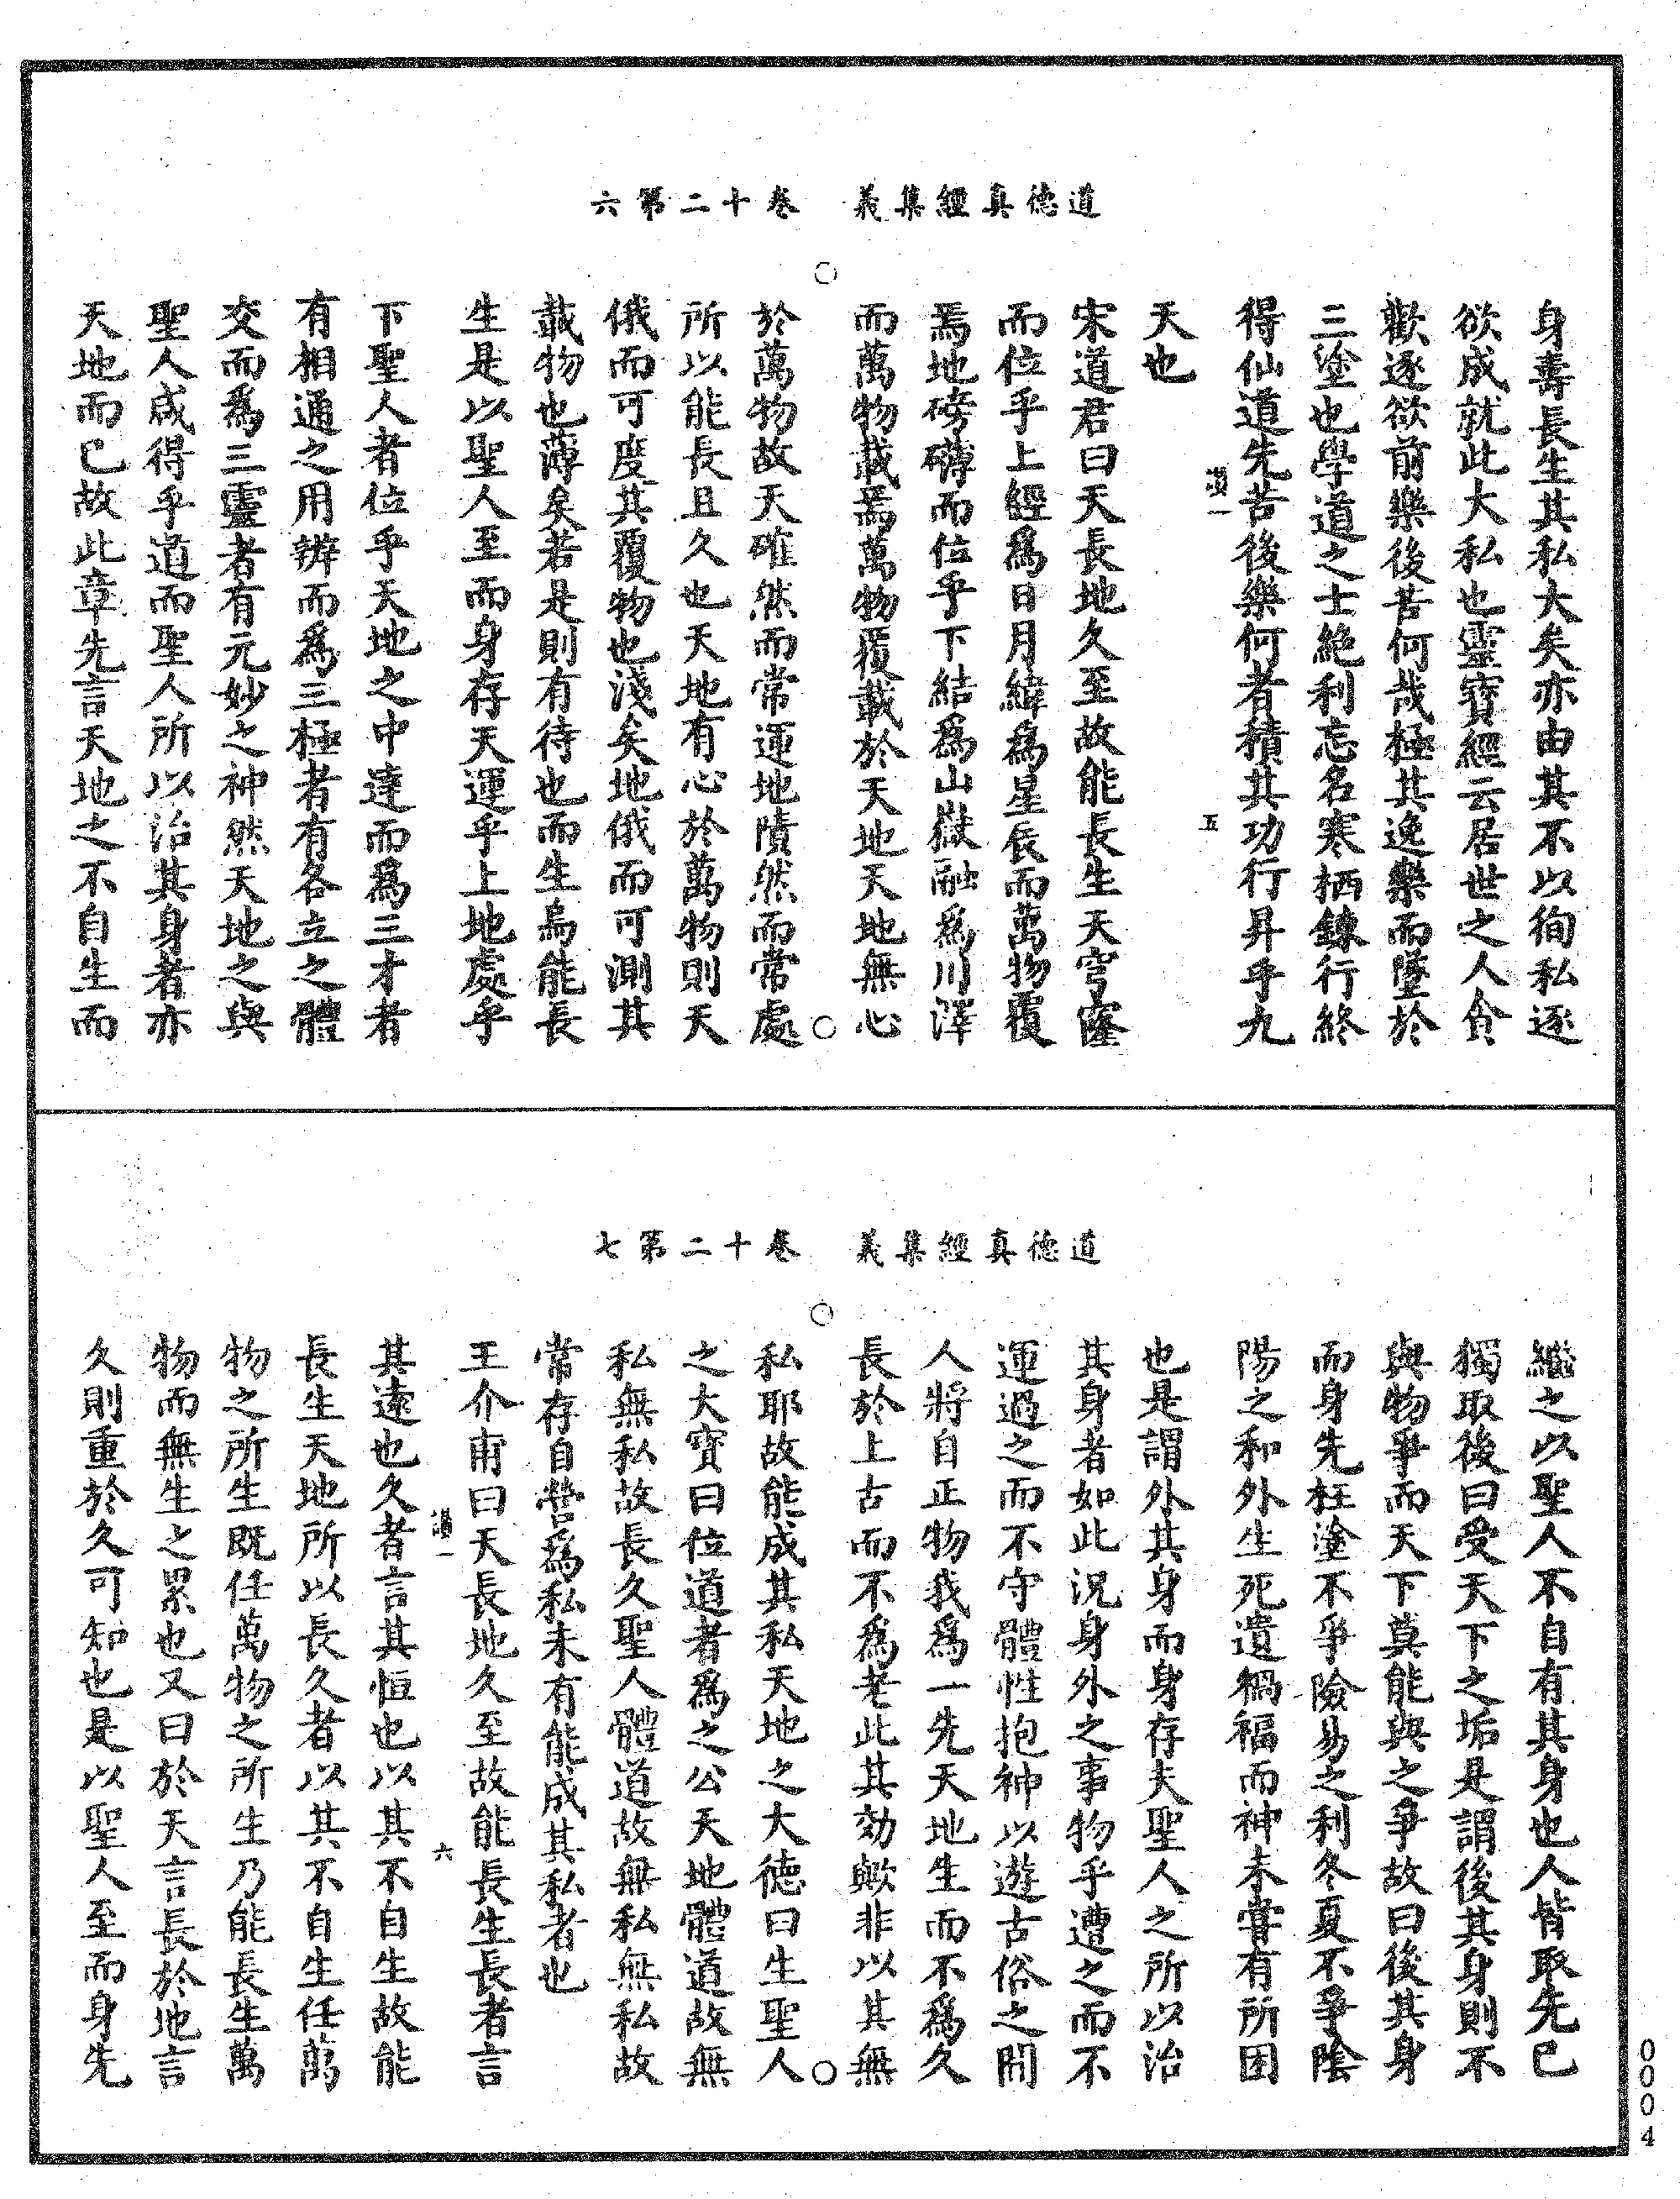 道德真經集義　卷十二第六
身壽長生其私大矣亦由其不以徇私逐
欲成就此大私也靈寶經云居世之人貪
歡逐欲前樂後苦何哉極其逸樂而墮於
三塗也學道之士絕利忘名寒栖鍊行終
得仙道先苦後樂何者積其功行昇乎九
讓一　五
天也
宋道君曰天長地久至故能長生天穹窿
而位乎上經爲日月緯爲星辰而萬物覆
焉地磅礴而位乎下結爲山嶽融爲川澤
而萬物載焉萬物覆載於天地天地無心
於萬物故天確然而常運地隤然而常處
所以能長且久也天地有心於萬物則天
俄而可度其覆物也淺矣地俄而可測其
載物也薄矣若是則有待也而生烏能長
生是以聖人至而身存天運乎上地處乎
下聖人者位乎天地之中達而爲三才者
有相通之用辨而爲三極者有各立之體
交而爲三靈者有元妙之神然天地之與
聖人咸得乎道而聖人所以治其身者亦
天地而已故此章先言天地之不自生而
道德真經集義　卷十二第七
繼之以聖人不自有其身也人皆取先已
獨取後曰受天下之垢是謂後其身則不
與物爭而天下莫能與之爭故曰後其身
而身先枉塗不爭險易之利冬夏不爭陰
陽之和外生死遺禍福而神未嘗有所困
也是謂外其身而身存夫聖人之所以治
其身者如此況身外之事物乎遭之而不
運過之而不守體性抱神以遊古俗之間
人將自正物我爲一先天地生而不爲久
長於上古而不爲老此其効歟非以其無
私耶故能成其私天地之大德曰生聖人
之大寶曰位道者爲之公天地體道故無
私無私故長久聖人體道故無私無私故
常存自營爲私未有能成其私者也
王介甫曰天長地久至故能長生長者言
讓一　六
其遠也久者言其恒也以其不自生故能
長生天地所以長久者以其不自生任萬
物之所生既任萬物之所生乃能長生萬
物而無生之累也又曰於天言長於地言
久則重於久可知也是以聖人至而身先
0004